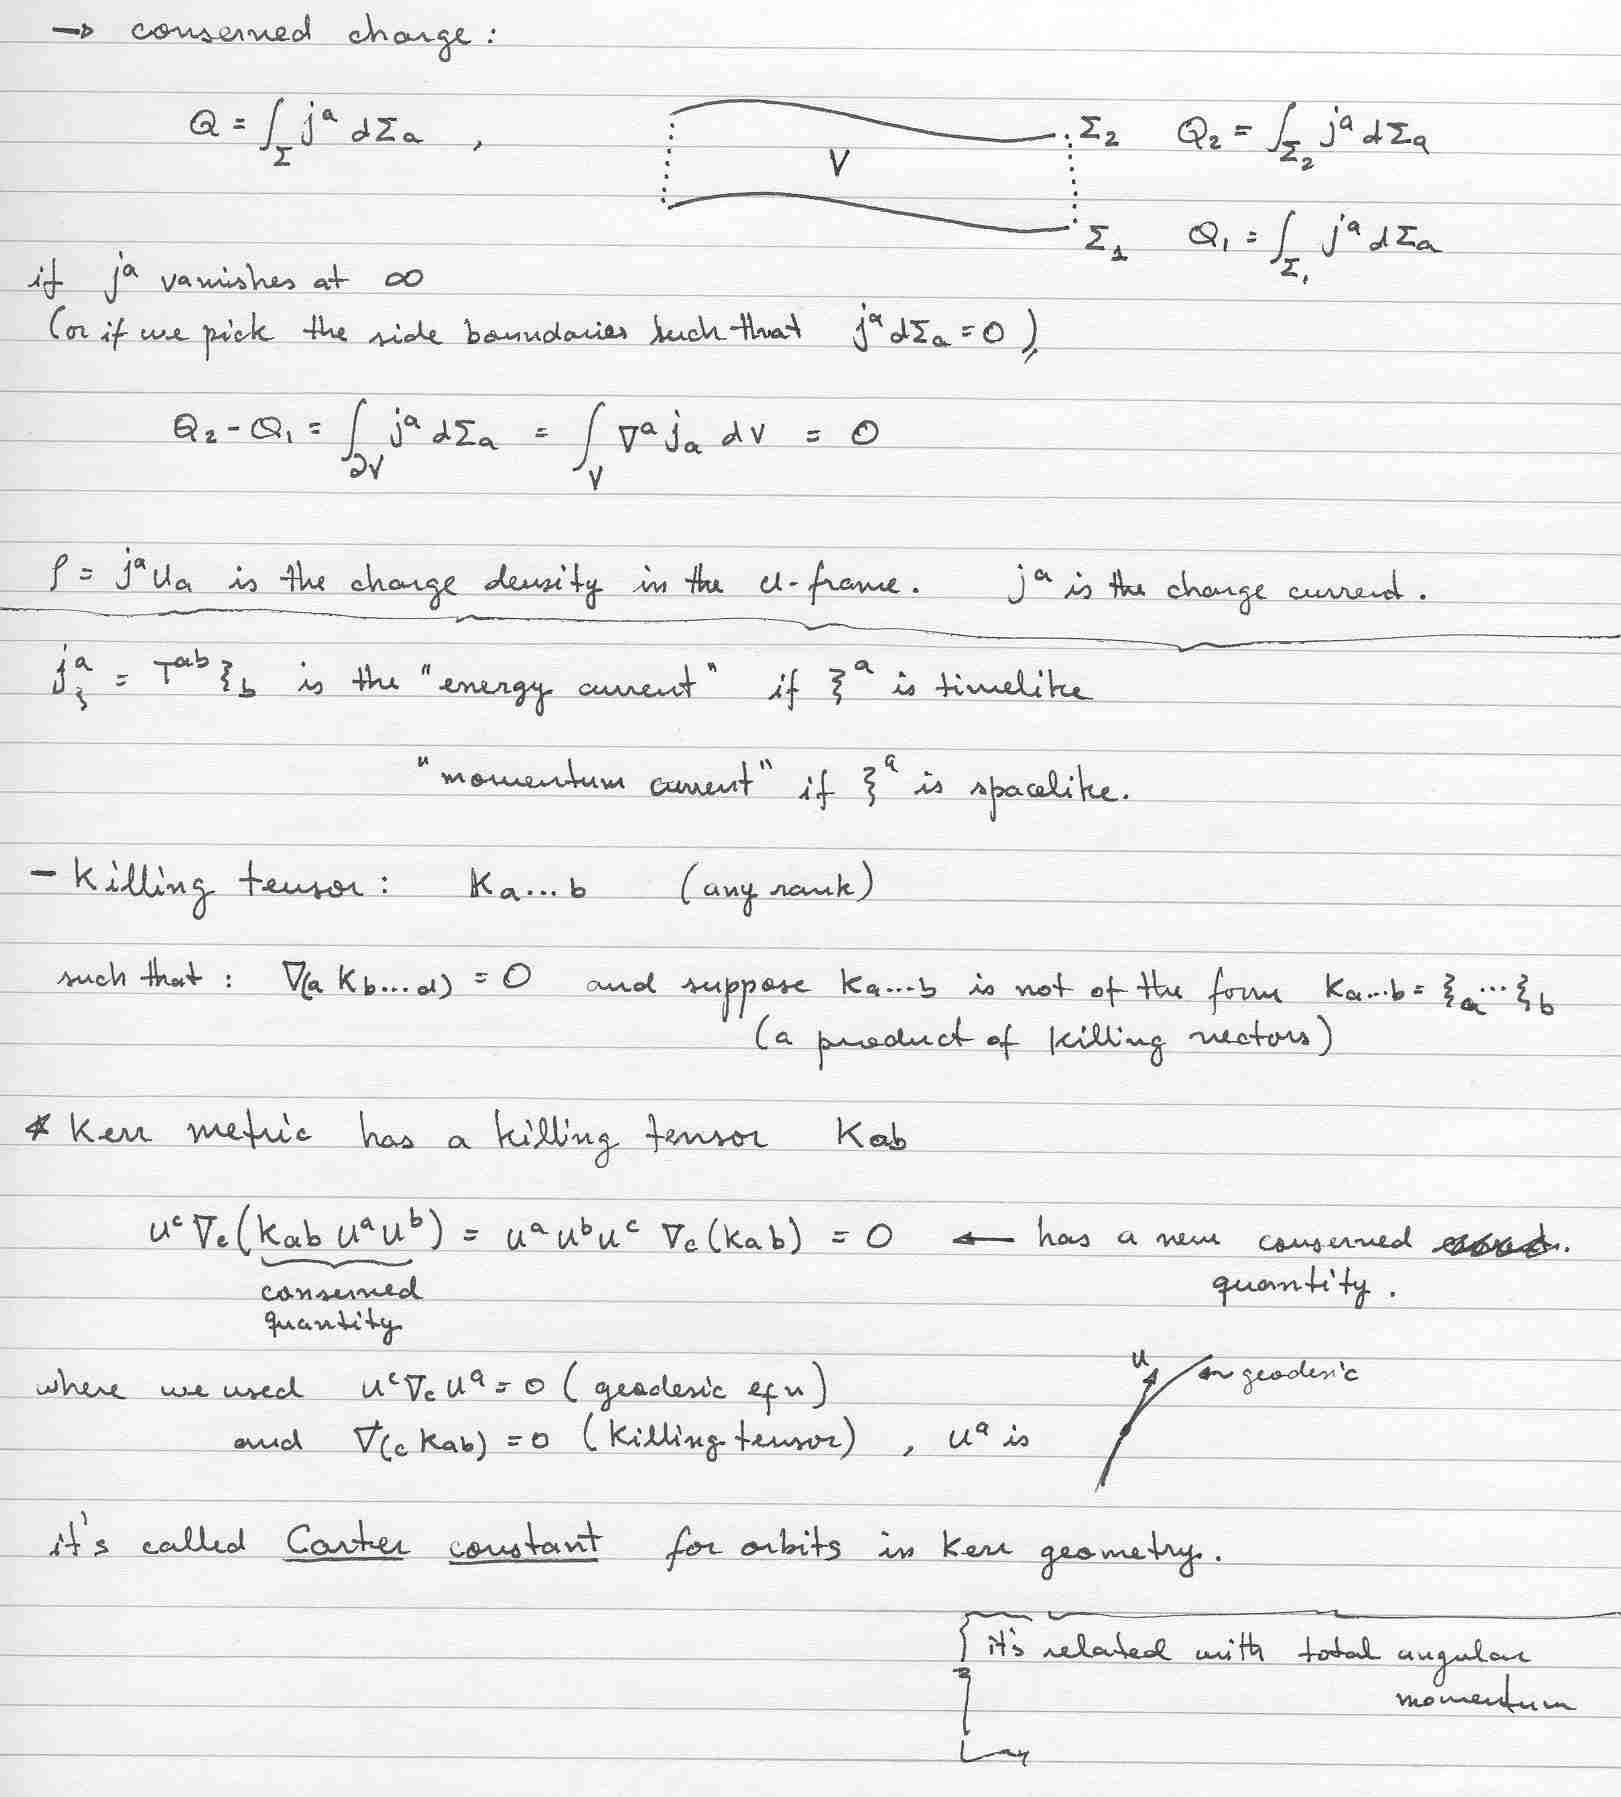 → conserved charge:
Q = ∫_Σ j^a dΣ_a , V Σ_2 Q_2 = ∫_{Σ_2} j^a dΣ_a
Σ_1 Q_1 = ∫_{Σ_1} j^a dΣ_a
if j^a vanishes at ∞
(or if we pick the side boundaries such that j^a dΣ_a = 0),
Q_2 - Q_1 = ∫_{∂V} j^a dΣ_a = ∫_V ∇^a j_a dV = 0
ρ = j^a u_a is the charge density in the u-frame. j^a is the charge current.
j^a_ξ = T^{ab} ξ_b is the "energy current" if ξ^a is timelike
"momentum current" if ξ^a is spacelike.
- Killing tensor: K_{a...b} (any rank)
such that: ∇_{(a} K_{b...d)} = 0 and suppose K_{a...b} is not of the form K_{a...b} = ξ_a ... ξ_b
(a product of killing vectors)
* Kerr metric has a killing tensor K_{ab}
u^c ∇_c (K_{ab} u^a u^b) = u^a u^b u^c ∇_c (K_{ab}) = 0 ← has a new conserved
conserved quantity.
quantity
where we used u^c ∇_c u^a = 0 (geodesic eqn) u ← geodesic
and ∇_{(c} K_{ab)} = 0 (Killing tensor) , u^a is
it's called Carter constant for orbits in Kerr geometry.
it's related with total angular
momentum